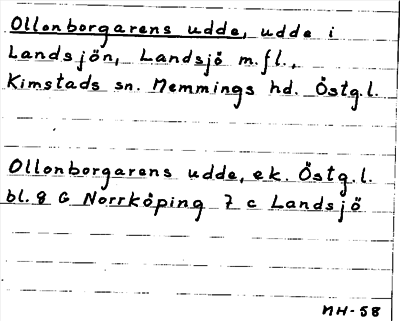 Ollonborgarens udde, udde i
Landsjön, Landsjö m.fl.,
Kimstads sn. Memmings hd. Östg.l.
Ollonborgarens udde, ek. Östg.l.
bl. 8 G Norrköping 7 c Landsjö
MH-58